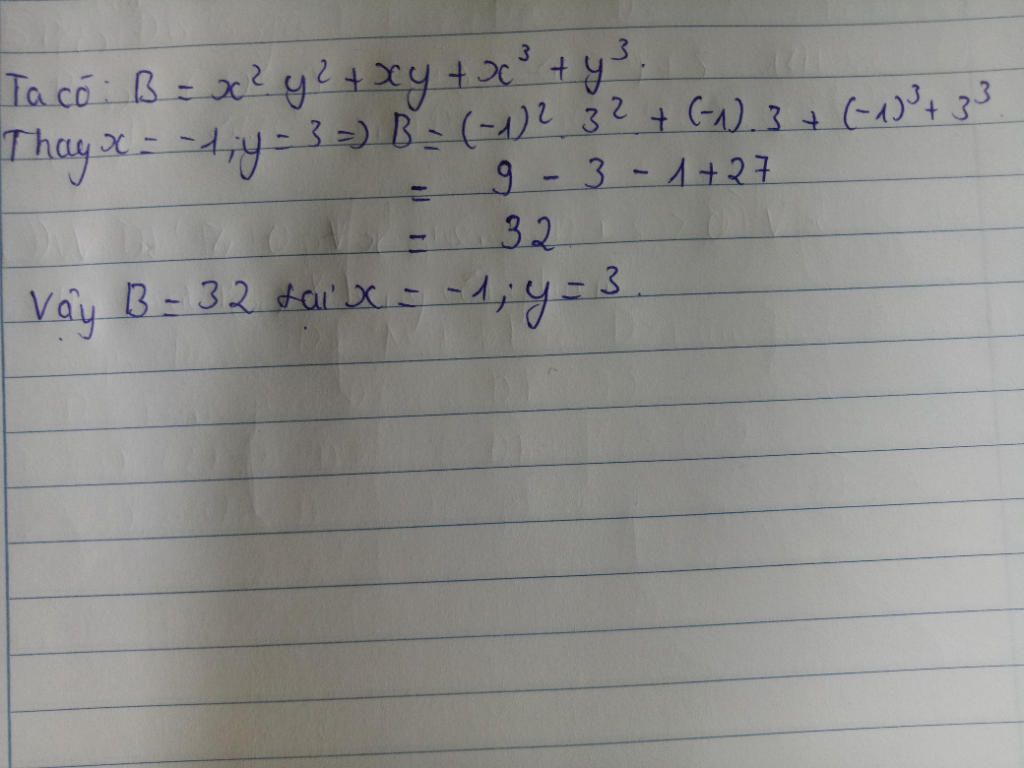 Ta có: B = x² y² + xy + x³ + y³.
Thay x = -1; y = 3 => B = (-1)². 3² + (-1). 3 + (-1)³ + 3³.
= 9 - 3 - 1 + 27
= 32
Vậy B = 32 tại x = -1; y = 3.